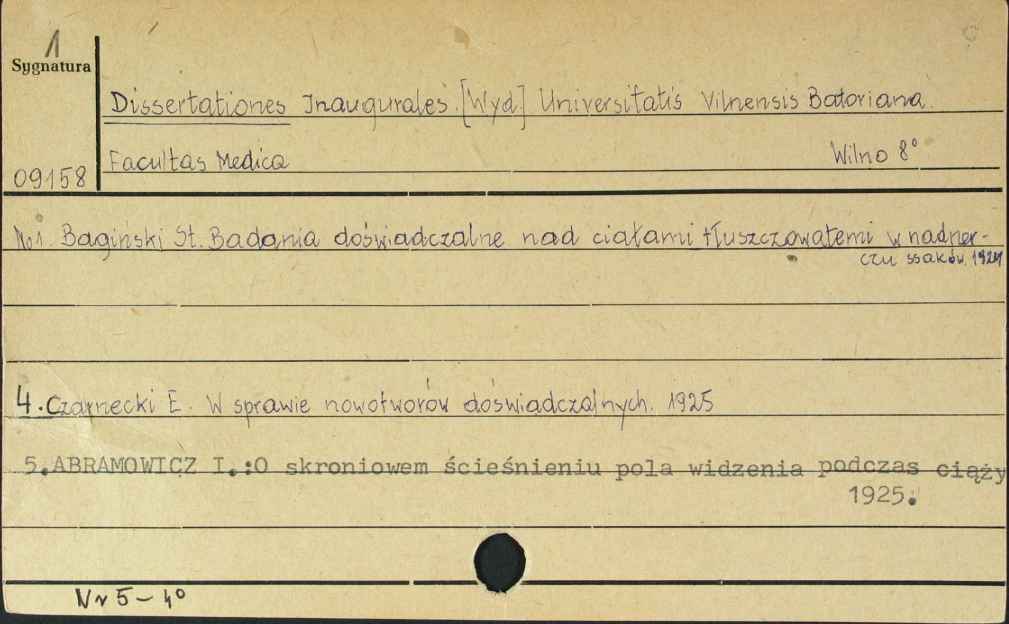 1
Sygnatura
Dissertationes Inaugurales. [Wyd] Universitatis Vilnensis Batoriana.
Facultas Medica Wilno 8°
09158
No1. Bagiński St. Badania doświadczalne nad ciałami tłuszczowatemi w nadner-
czu ssaków. 1924
4. Czarnecki E. W sprawie nowotworów doświadczalnych. 1925
5.ABRAMOWICZ I.:O skroniowem ścieśnieniu pola widzenia podczas ciąży
1925.
Nr 5 - 4°